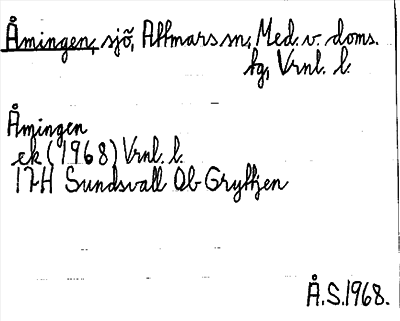 Åmingen, sjö, Attmars sn, Med. v. doms.
tg, Vrnl. l.
Åmingen
ek (1968) Vrnl. l.
17H Sundsvall Ob Gryttjen
Å.S. 1968.